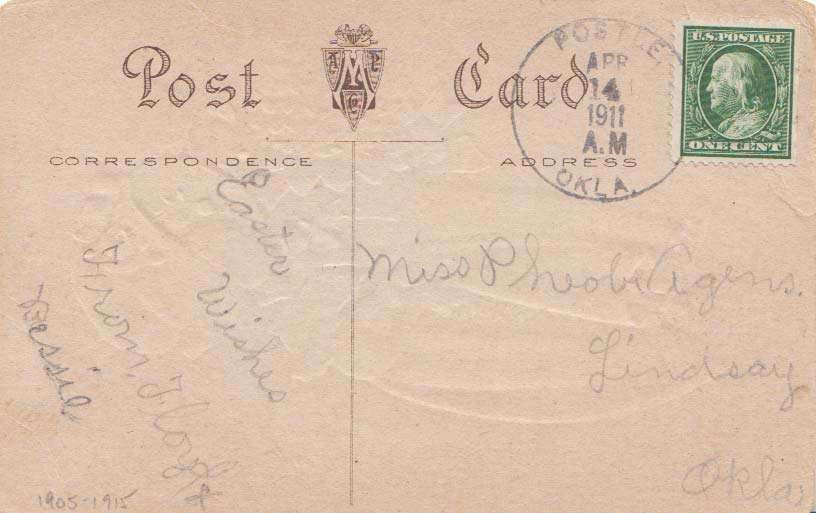 Post Card
CORRESPONDENCE
ADDRESS
POSTLE,
APR
14
1911
A.M
OKLA.
U.S. POSTAGE
ONE CENT
A M P Co
Easter
Wishes
From, Floyd &
Bessie
Miss Pheobe Agens.
Lindsay
Okla,
1905-1915